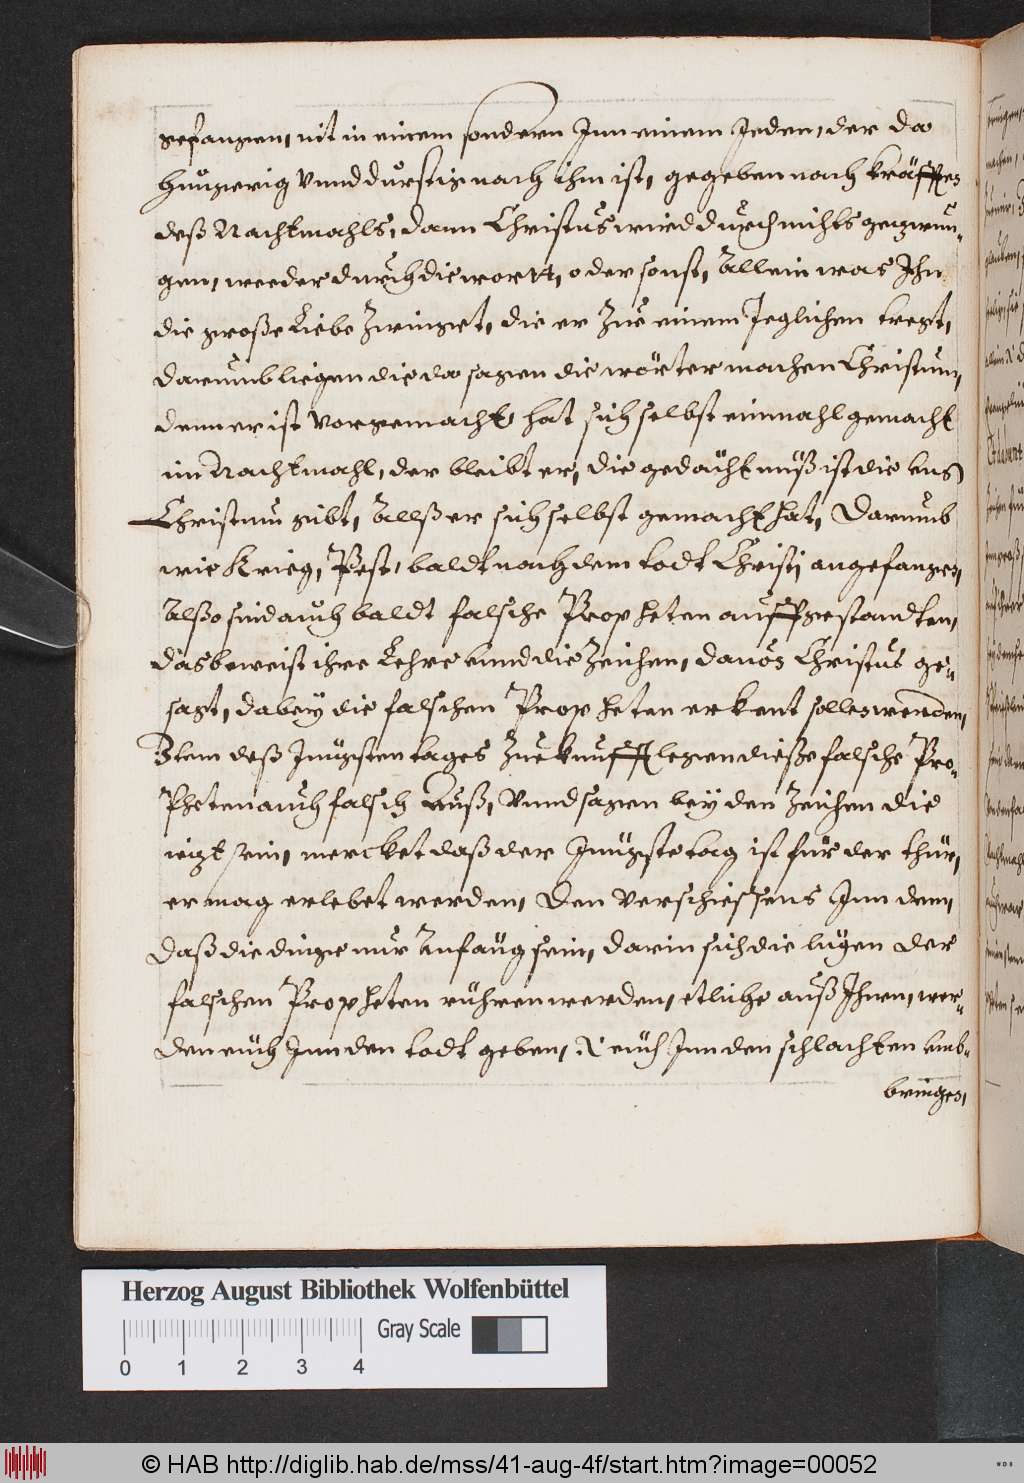 gefangen, nit in einem sondern Inn einem Jeden, der da
hungerig Vnnd durstig nach ihm ist, gegeben nach kräfften
deß Nachtmahls, dann Christus wird durch nichts gezwun-
gen, weeder durch die wortt, oder sonst, Allein was Ihn
die große Liebe Zwinget, die er Zue einem Jeglichen tregt,
darumb liegen die da sagen die wörter machen Christum,
denn er ist Vorgemacht, hat sich selbst einmahl gemacht
im Nachtmahl, der bleibt er, die gedächtnuß ist die vns
Christum gibt, Allß er sich selbst gemacht hat, Darumb
wie Krieg, Pest, baldt nach dem todt Christi angefangen,
Alßo sind auch baldt falsche Propheten auffgestandten,
das beweist ihre Lehre vnnd die Zeichen, dauon Christus ge-
sagt, dabey die falschen Propheten erkent sollen werden,
Item deß Jungsten tages Zuekunfft legen dieße falsche Pro-
Pheten auch falsch Auß, Vnnd sagen bey den Zeichen die
iezt sein, mercket daß der Jungste tag ist für der thür,
er mag erlebet werden, Den Verschiessens Inn dem,
daß die dinge nur Anfang sein, darin sich die lugen der
falschen Propheten rühren werden, etliche auß Ihnen, wer-
den euch Inn den todt geben, & euch Inn den schlachten vmb-
bringen,
Herzog August Bibliothek Wolfenbüttel
Gray Scale
0 1 2 3 4
© HAB http://diglib.hab.de/mss/41-aug-4f/start.htm?image=00052